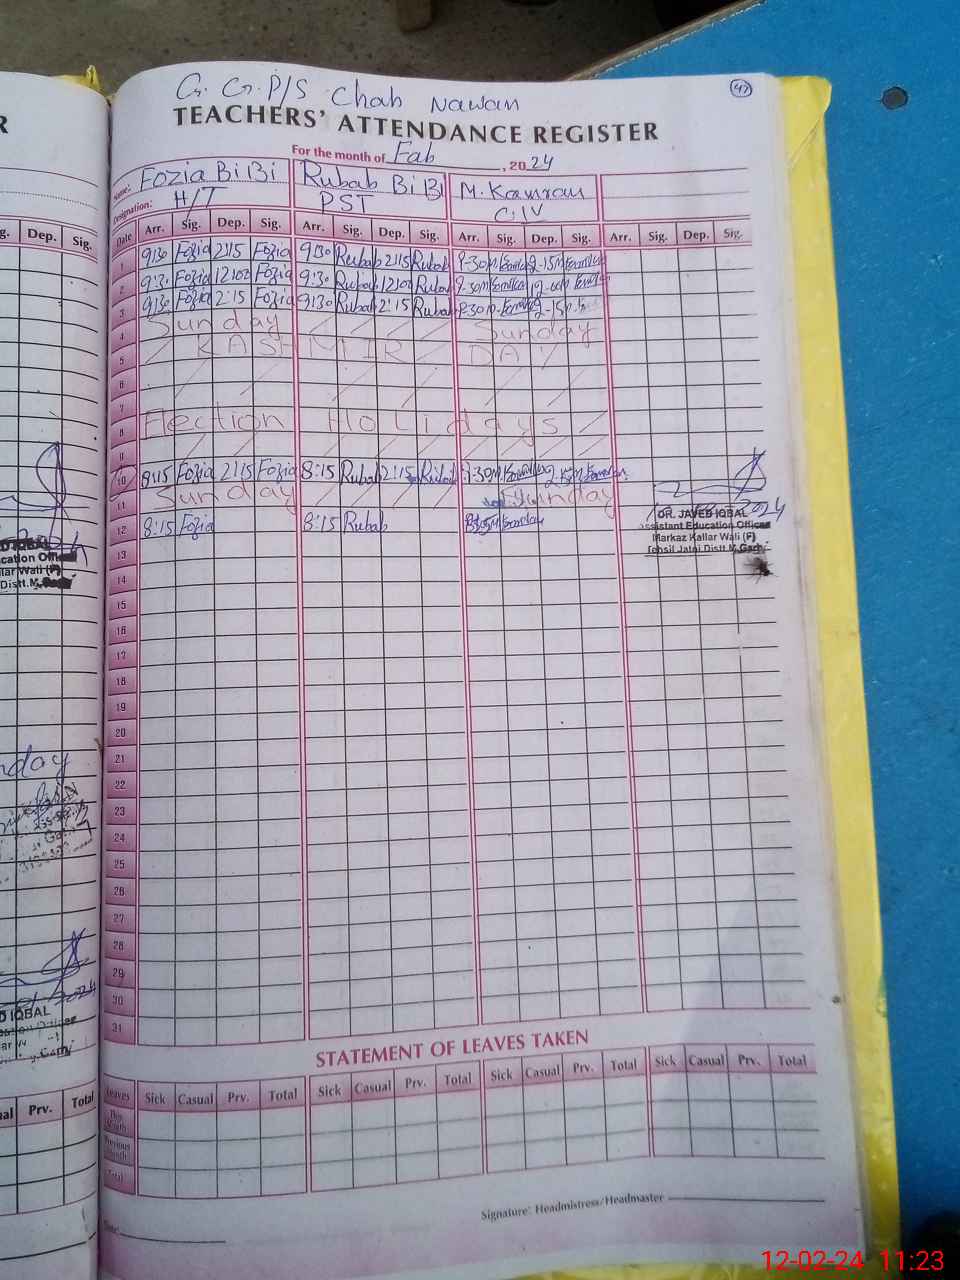 G. G. P/S Chah Nawan
47
TEACHERS' ATTENDANCE REGISTER
For the month of Fab, 2024
Name: Fozia BiBi Rubab BiBi M. Kamran
Designation: H/T PST C-IV
Date Arr. Sig. Dep. Sig. Arr. Sig. Dep. Sig. Arr. Sig. Dep. Sig. Arr. Sig. Dep. Sig.
1 9:30 Fozia 2:15 Fozia 9:30 Rubab 2:15 Rubab 9-30 2-15
2 9:30 Fozia 12:00 Fozia 9:30 Rubab 12:00 Rubab 9-30 12-00
3 9:30 Fozia 2:15 Fozia 9:30 Rubab 2:15 Rubab 9-30 2-15
4 Sunday Sunday
5 KASHMIR DAY
6
7
8 Election Holidays
9
10 8:15 Fozia 2:15 Fozia 8:15 Rubab 2:15 Rubab
11 Sunday Sunday
12 8:15 Fozia 8:15 Rubab
DR. JAVED IQBAL
Assistant Education Officer
Markaz Kallar Wali (F)
Tehsil Jatoi Distt M.Garh
13
14
15
16
17
18
19
20
21
22
23
24
25
26
27
28
29
30
31
STATEMENT OF LEAVES TAKEN
Leaves Sick Casual Prv. Total Sick Casual Prv. Total Sick Casual Prv. Total Sick Casual Prv. Total
This Month
Previous Month
Total
Signature: Headmistress/Headmaster
Date:
R
Dep. Sig.
Prv. Total
12-02-24 11:23